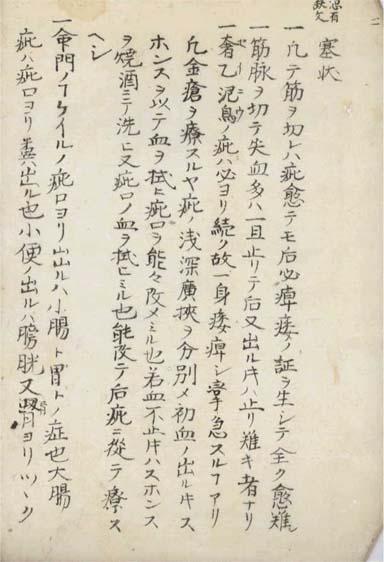 恐有
缺文
塞状
一凡テ筋ヲ切レハ疵愈テモ后必痺痿ノ証ヲ生シテ全ク愈難
一筋脉ヲ切テ失血多ハ一旦止リテ后又出ル𪜈ハ止リ難キ者ナリ
一奢乙泥鳥ノ疵ハ必ヨリ続ク故一身痿痺シ挛急スルアリ
ゼーニウ
凡金瘡ヲ療スルヤ疵ノ浅深廣挾ヲ分別メ初血ノ出ルキス
ホンスヲ以テ血ヲ拭ヒ疵口ヲ能々改メミル也若血不止キハスホンス
ヲ焼酒ニテ洗ヒ又疵口ノ血ヲ拭ヒミル也能改テ后疵ニ從テ療ス
ヘシ
一命門ノアケイルノ疵口ヨリ出ルハ小腸ト胃トノ症也大腸
疵ハ疵口ヨリ糞出ル也小便ノ出ルハ膀胱又腎ヨリツヽク